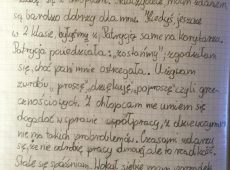 są bardzo dobrzy dla mnie. Kiedyś, jeszcze
w 2 klasie, byłyśmy z Patrycją same na korytarzu.
Patrycja powiedziała: „zostańmy", zgodziłam
się, choć pani mnie ostrzegała. Używam
zwrotów „proszę", „dziękuję", „poproszę" czyli grze-
cznościowych. Z chłopcami nie umiem się
dogadać w sprawie współpracy, z dziewczynami
nie ma takich problemów. Czasem zdarza
się, że nie odrobię pracy domowej, ale to rzadkość.